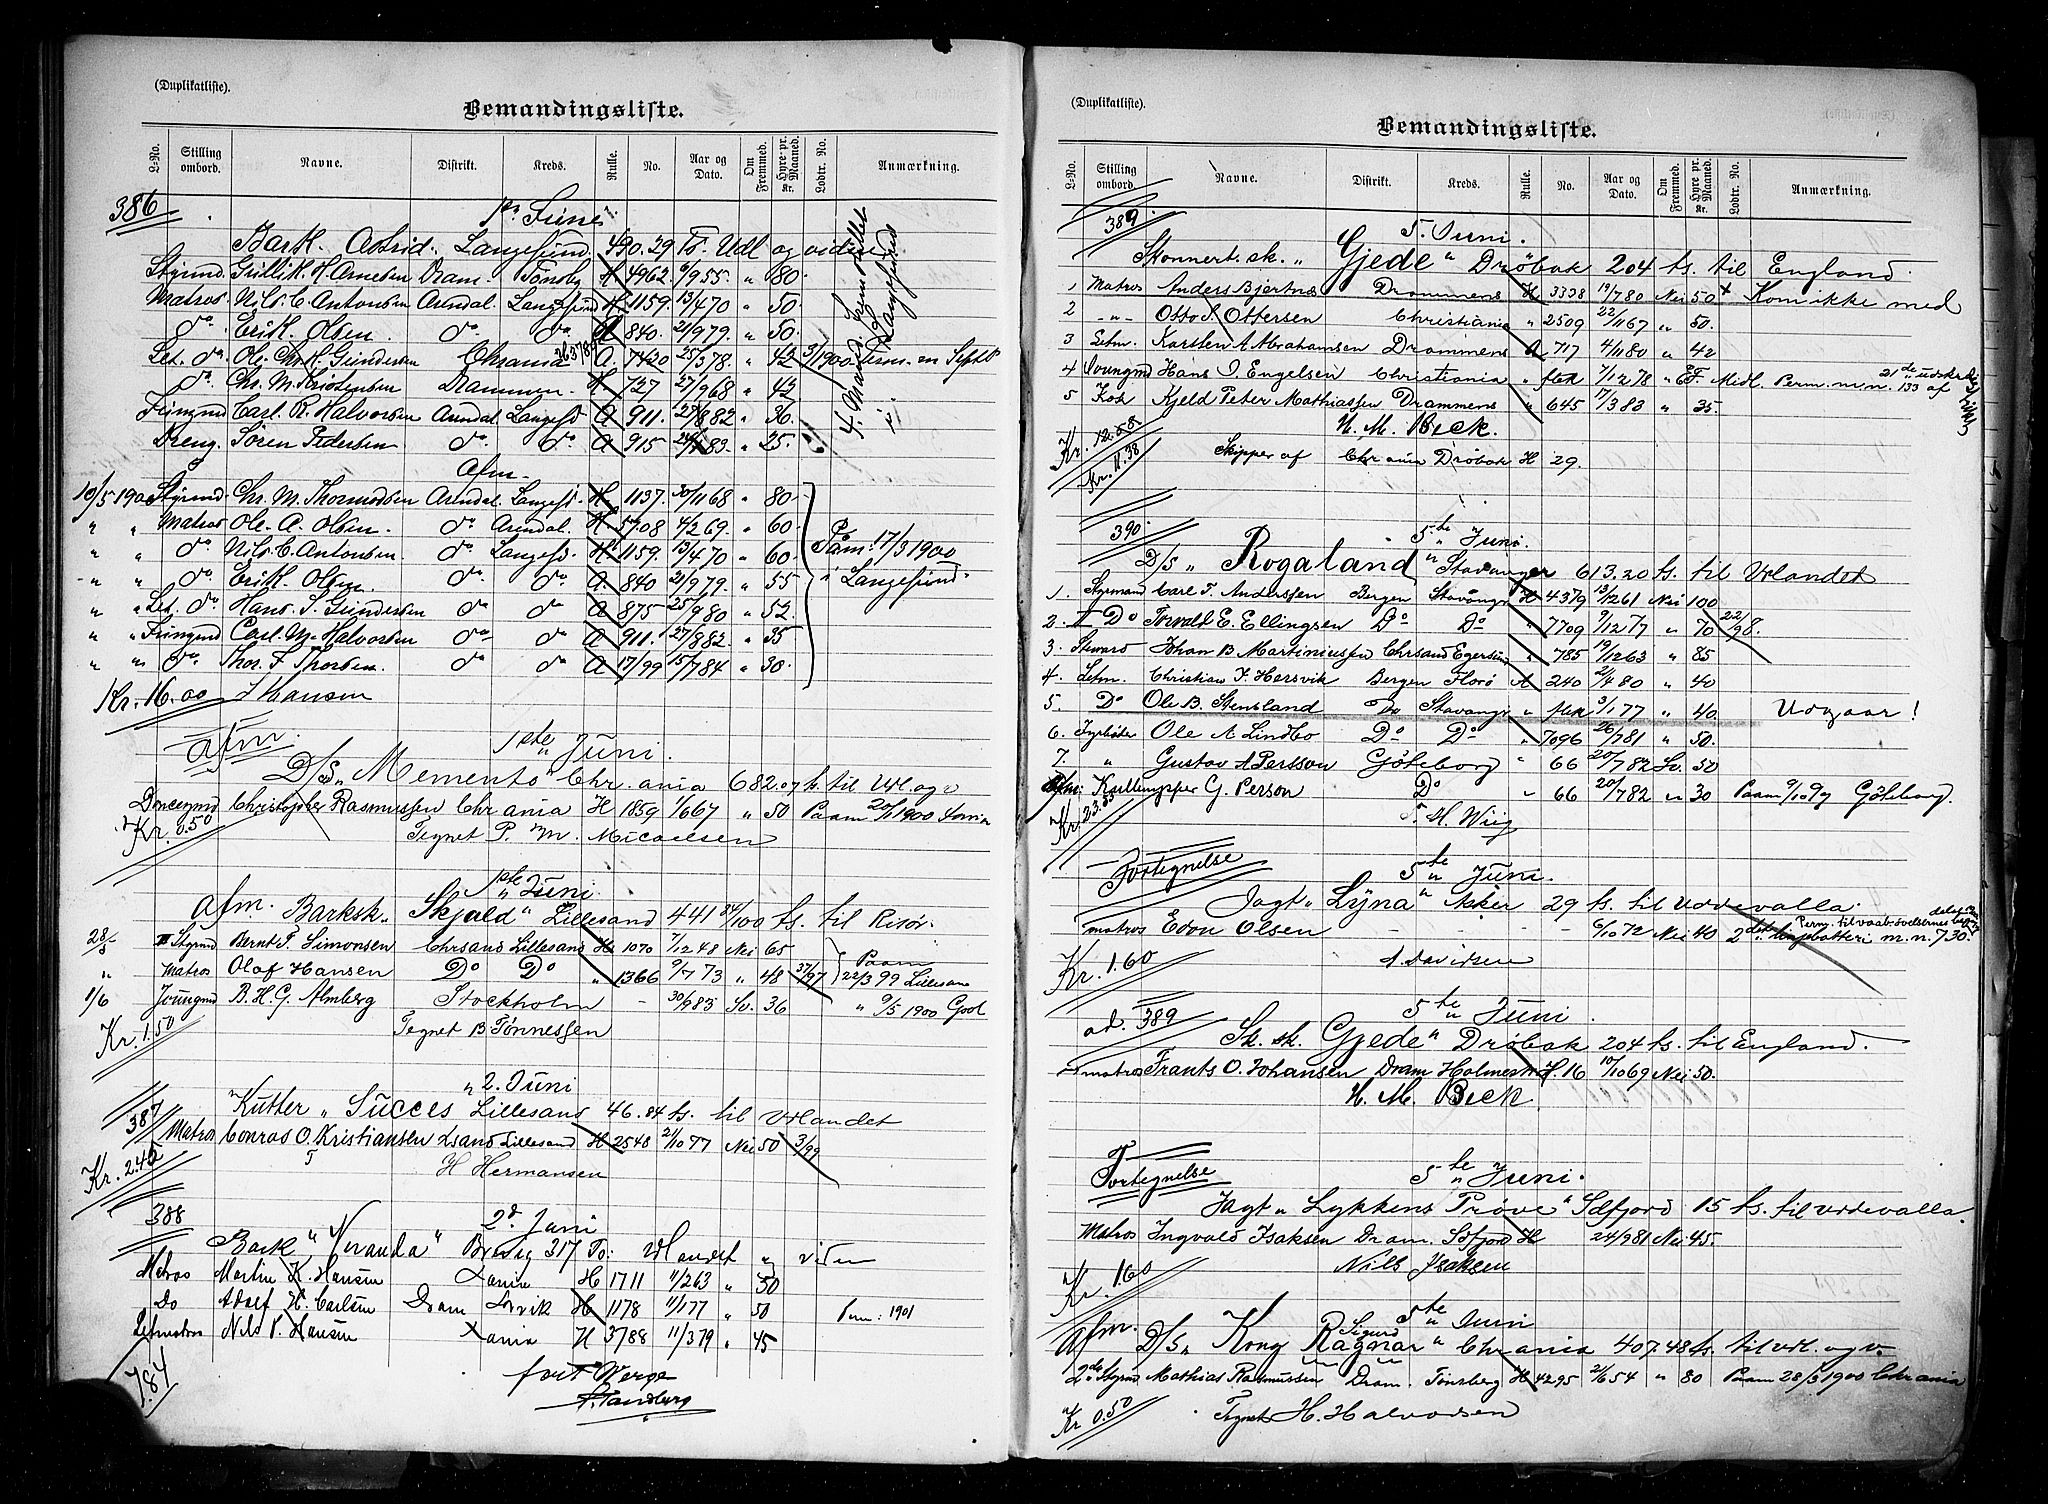 (Duplikatliste).
Bemandingsliste.
L-No. Stilling ombord. Navne. Distrikt. Kreds. Rulle. No. Aar og Dato. Om Fremmed. Hyre pr. Maaned. Kr. Lodtr. No. Anmærkning.
386
Juni
Bark. Astrid. Langesund. 490.29 To. Udl og videre
Styrmd. Gullik. H. Arnesen Dram. Tönsbg H 4962 9/9 55. " 80
Matros. Nils. C. Antonsen Arendal. Langesund H. 1159. 13/4 70 " 50.
do Erik. Olsen. do. do. A 840. 21/9 79. " 50.
Let. do. Ole. Chr. K. Gundersen Chrania A. 7420 25/3 78. " 42 3/1900 Perm. m Septbr
do. Chr. M. Kristensen Drammen. H. 727 27/9 68 " 42
Jungmd. Carl. R. Halvorsen Arendal Langesd A. 911. 27/8 82 " 30.
Dreng. Sören Pedersen do. do. A 915 83. " 25.
afm.
10/5 1900 Styrmd. Chr. M. Thormodsen Arendal. Langesd. H. 1137. 30/11 68 " 80
" " Matros Ole. A. Olsen. do. Arendal. H 5708 4/2 69. " 60.
" " do. Nils. C. Antonsen. do. Langesd. H. 1159. 13/4 70 " 60.
" " do. Erik. Olsen do. do. A. 840 21/9 79. " 55
" " Let. do. Hans. S. Gundersen do do A 875 25/9 80 " 52.
" " Jungmd. Carl. M. Halvorsen do do A 911. 27/8 82. " 35
" " do. Thor. F. Thorsen. do do A 17/99 15/7 84 " 30.
Paam. 17/3 1900 i Langesund.
Kr. 16.00 Hansen
afm. 1ste Juni.
D/S "Memento" Chr.ania 682.07 t. til Udl. og v
Donccymd Christopher Rasmussen Chrania H 1859 1/6 67 " 50 Paam 20/1 1900
Kr. 0.50 Tegnet P. M. Micaelsen
1ste Juni
Afm. Barksk. "Skjold" Lillesand 441 84/100 ts. til Risør.
28/5 II Styrmd Bernt T. Simonsen Chrsand Lillesand H 1070 7/12 48 Nei 65 Paam
" Matros Olaf Hansen Do Do " 1366 9/7 73 " 48 37/97 22/3 99 Lillesand
1/6 Jungmd B. H. G. Almberg Stockholm - 30/9 83 Sv. 36 " 9/5 1900 Gool
Kr. 1.50 Tegnet B Tønnessen
" 2. Juni
387 Kutter "Succes" Lillesand 46.84 ts. til Udlandet
Matros Conrad O. Kristiansen Xsand Lillesand H 2548 2/10 77 Nei 50 3/99
Kr. 2.42 H Hermansen
388 2d Juni
Bark "Veranda" Brevig 317 To: Udlandet og viden
Matros Martin K. Hansen Xania H 1711 11/2 63 " 50
Do Adolf H. Carlsen Dram Lorvik H 1178 11/1 77 " 50 Perm: 1901
Letmatros Nils P. Hansen Xania H 3788 11/3 79 " 45
784
(Duplikatliste).
Bemandingsliste.
L-No. Stilling ombord. Navne. Distrikt. Kreds. Rulle. No. Aar og Dato. Om Fremmed. Hyre pr. Maaned. Kr. Lodtr. No. Anmærkning.
389. 5. Juni.
Skonnert. sk. "Gjede" Drøbak 204 ts. til England.
1 Matros Anders Bjertnes Drammens H 3338 19/7 80 Nei 50 + Kom ikke med
2 -"- Otto S. Ottersen Christiania " 2509 22/11 67 " 50.
3 Letm. Karsten A. Abrahamsen Drammens A 717 4/11 80 " 42
4 Youngmd Hans J. Engelsen Christiania " flek 7/12 78 " Midl. Perm. m. n. 133 af
5 Kok Kjeld Peter Mathiassen Drammens " 645 17/3 83 " 35.
H. M. Beck.
Kr. 12.58
Kr. 11.38 Skipper af Chrania Drøbak H 29.
390. 5te Juni.
D/S "Rogaland" Stavanger 613.20 ts. til Udlandet
1. Styrmand Carl F. Anderssen Bergen Stavangr H 4379 13/12 61 Nei 100
2. II Do Torvald E. Ellingsen Do Do " 7709 9/12 77 " 70 22/98.
3. Steward Johan B Martiniussen Chrsand Egersund " 785 19/12 63 " 85
4. Letm. Christian F. Horsvik Bergen Florø A 240 21/4 80 " 40
5. Do Ole B. Stensland Do Stavangr " flek 3/1 77 " 40. Udgaar!
6. Fyrbøder Ole A Lindbo Do Do " 7096 26/7 81 " 50.
7. " Gustav A Persson Göteborg " 66 20/7 82 Sv. 50
Afm: Kullemper G. Person Do " 66 20/7 82 " 30 Paam 9/10 97 Göteborg.
Kr. 23.55 T. M. Wiig
Fortegnelse 5te Juni.
Jagt "Lyna" Asker 29 ts. til Uddevalla.
Matros Edon Olsen - - - - 6/10 72 Nei 40
Kr. 1.60 A. Davidsen
ad. 389 5te Juni
Sk. sk. "Gjede" Drøbak 204 ts. til England.
Matros Frants O. Johansen Dram Holmestr. H. 16 10/10 69 Nei 50.
H. M. Beck.
Fortegnelse 5te Juni.
Jagt "Lykkens Prøve" Idfjord 15 ts. til Uddevalla.
Matros Ingvald Isaksen Dram. Idfjord H 24/9 81 Nei 45.
Kr. 1.60 Nils Isaksen
5te Juni
Afm. D/S "Kong Ragnar" Sigurd Chrania 407.48 ts. til Udl. og v.
2de Styrmd Mathias Rasmussen Dram. Tønsberg H 4295 21/6 54 " 80 Paam 28/5 1900 Chrania
Kr 0.50 Tegnet H. Halvorsen